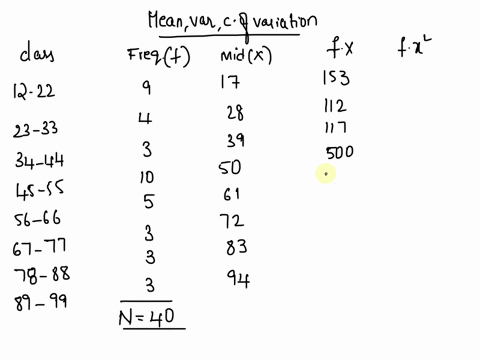 Mean, var, c. of variation
class Freq(f) mid(x) f.x f.x²
12-22 9 17 153
23-33 4 28 112
34-44 3 39 117
45-55 10 50 500
56-66 5 61
67-77 3 72
78-88 3 83
89-99 3 94
N=40